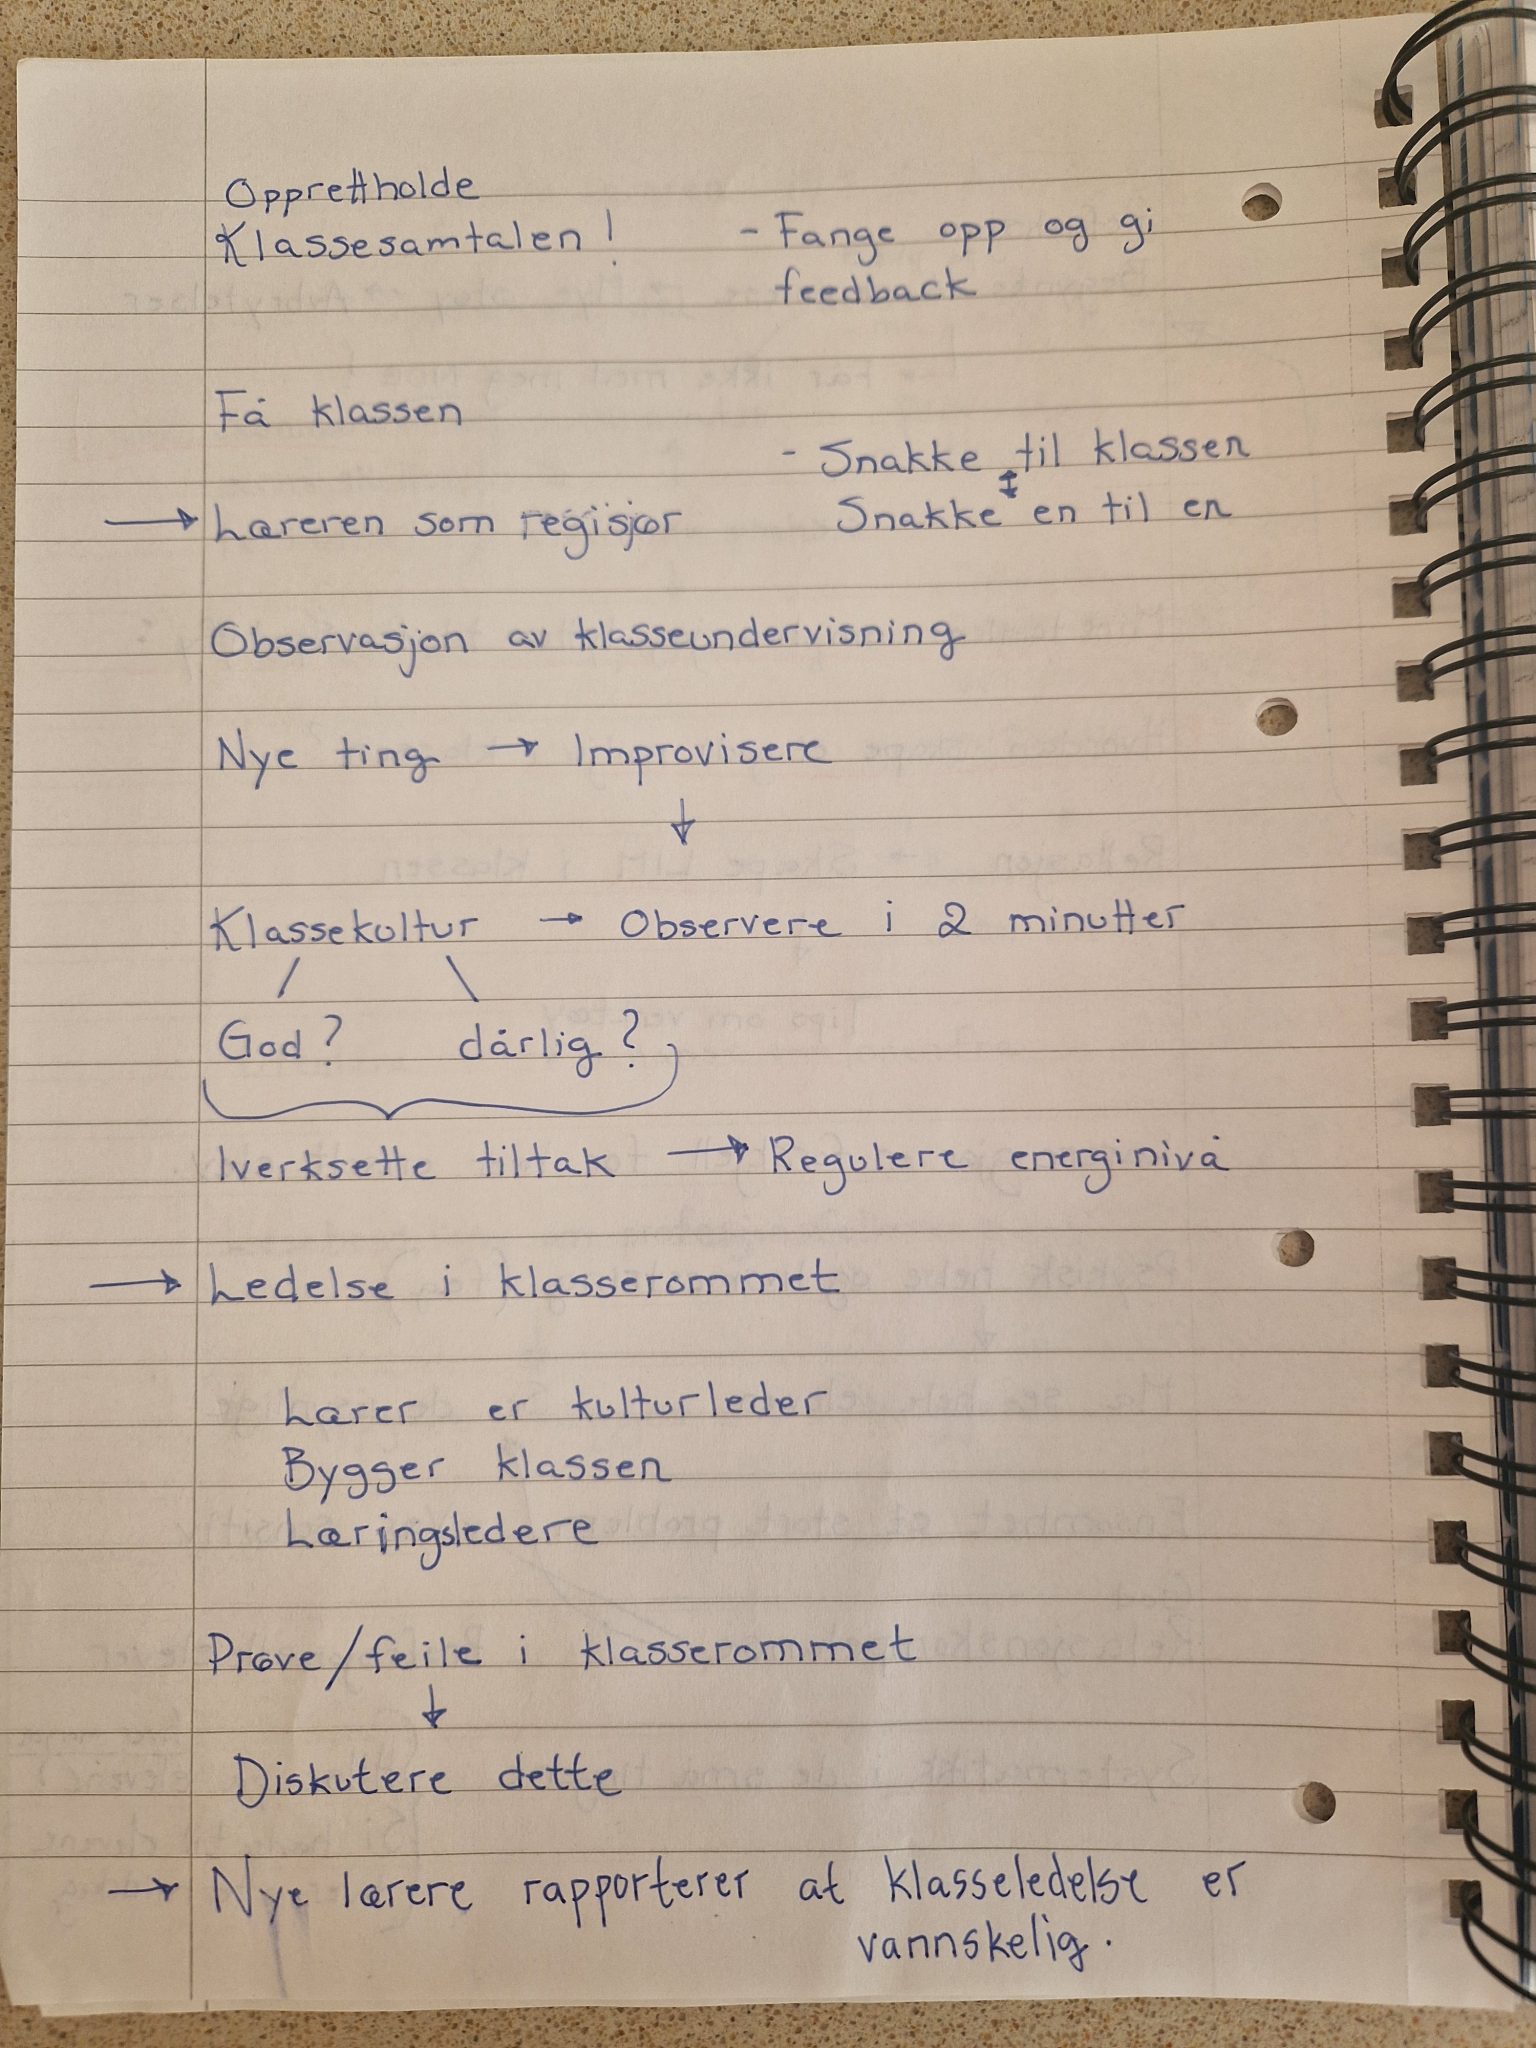 Opprettholde
Klassesamtalen! - Fange opp og gi
feedback
Få klassen
- Snakke til klassen
→ Læreren som regisjør Snakke en til en
Observasjon av klasseundervisning
Nye ting → Improvisere
↓
Klassekultur → Observere i 2 minutter
God? dårlig?
Iverksette tiltak → Regulere energinivå
→ Ledelse i klasserommet
Lærer er kulturleder
Bygger klassen
Læringsledere
Prøve/feile i klasserommet
↓
Diskutere dette
→ Nye lærere rapporterer at klasseledelse er
vannskelig.